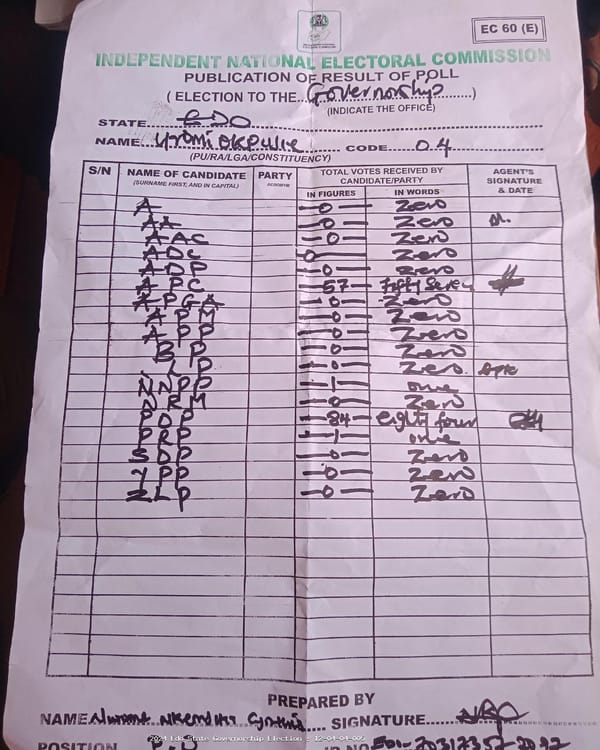 EC 60 (E)
INDEPENDENT NATIONAL ELECTORAL COMMISSION
PUBLICATION OF RESULT OF POLL
( ELECTION TO THE...Governorship...)
(INDICATE THE OFFICE)
STATE EDO
NAME CODE 04
(PU/RA/LGA/CONSTITUENCY)
S/N NAME OF CANDIDATE (SURNAME FIRST, AND IN CAPITAL) PARTY ACRONYM TOTAL VOTES RECEIVED BY CANDIDATE/PARTY IN FIGURES IN WORDS AGENT'S SIGNATURE & DATE
A -0- Zero
AA -0- Zero
AAC -0- Zero
ADC 0- Zero
ADP -0- Zero
APC -57- Fifty Seven
APGA -0- Zero
APM -0- Zero
APP -0- Zero
BP -0- Zero
LP -0- Zero
NNPP -1- one
NRM -0- Zero
PDP -84- eighty four
PRP -1- one
SDP -0- Zero
YPP -0- Zero
ZLP -0- Zero
PREPARED BY
NAME SIGNATURE
2024 Edo State Governorship Election - 12-04-04-005
POSITION P.O ID NO